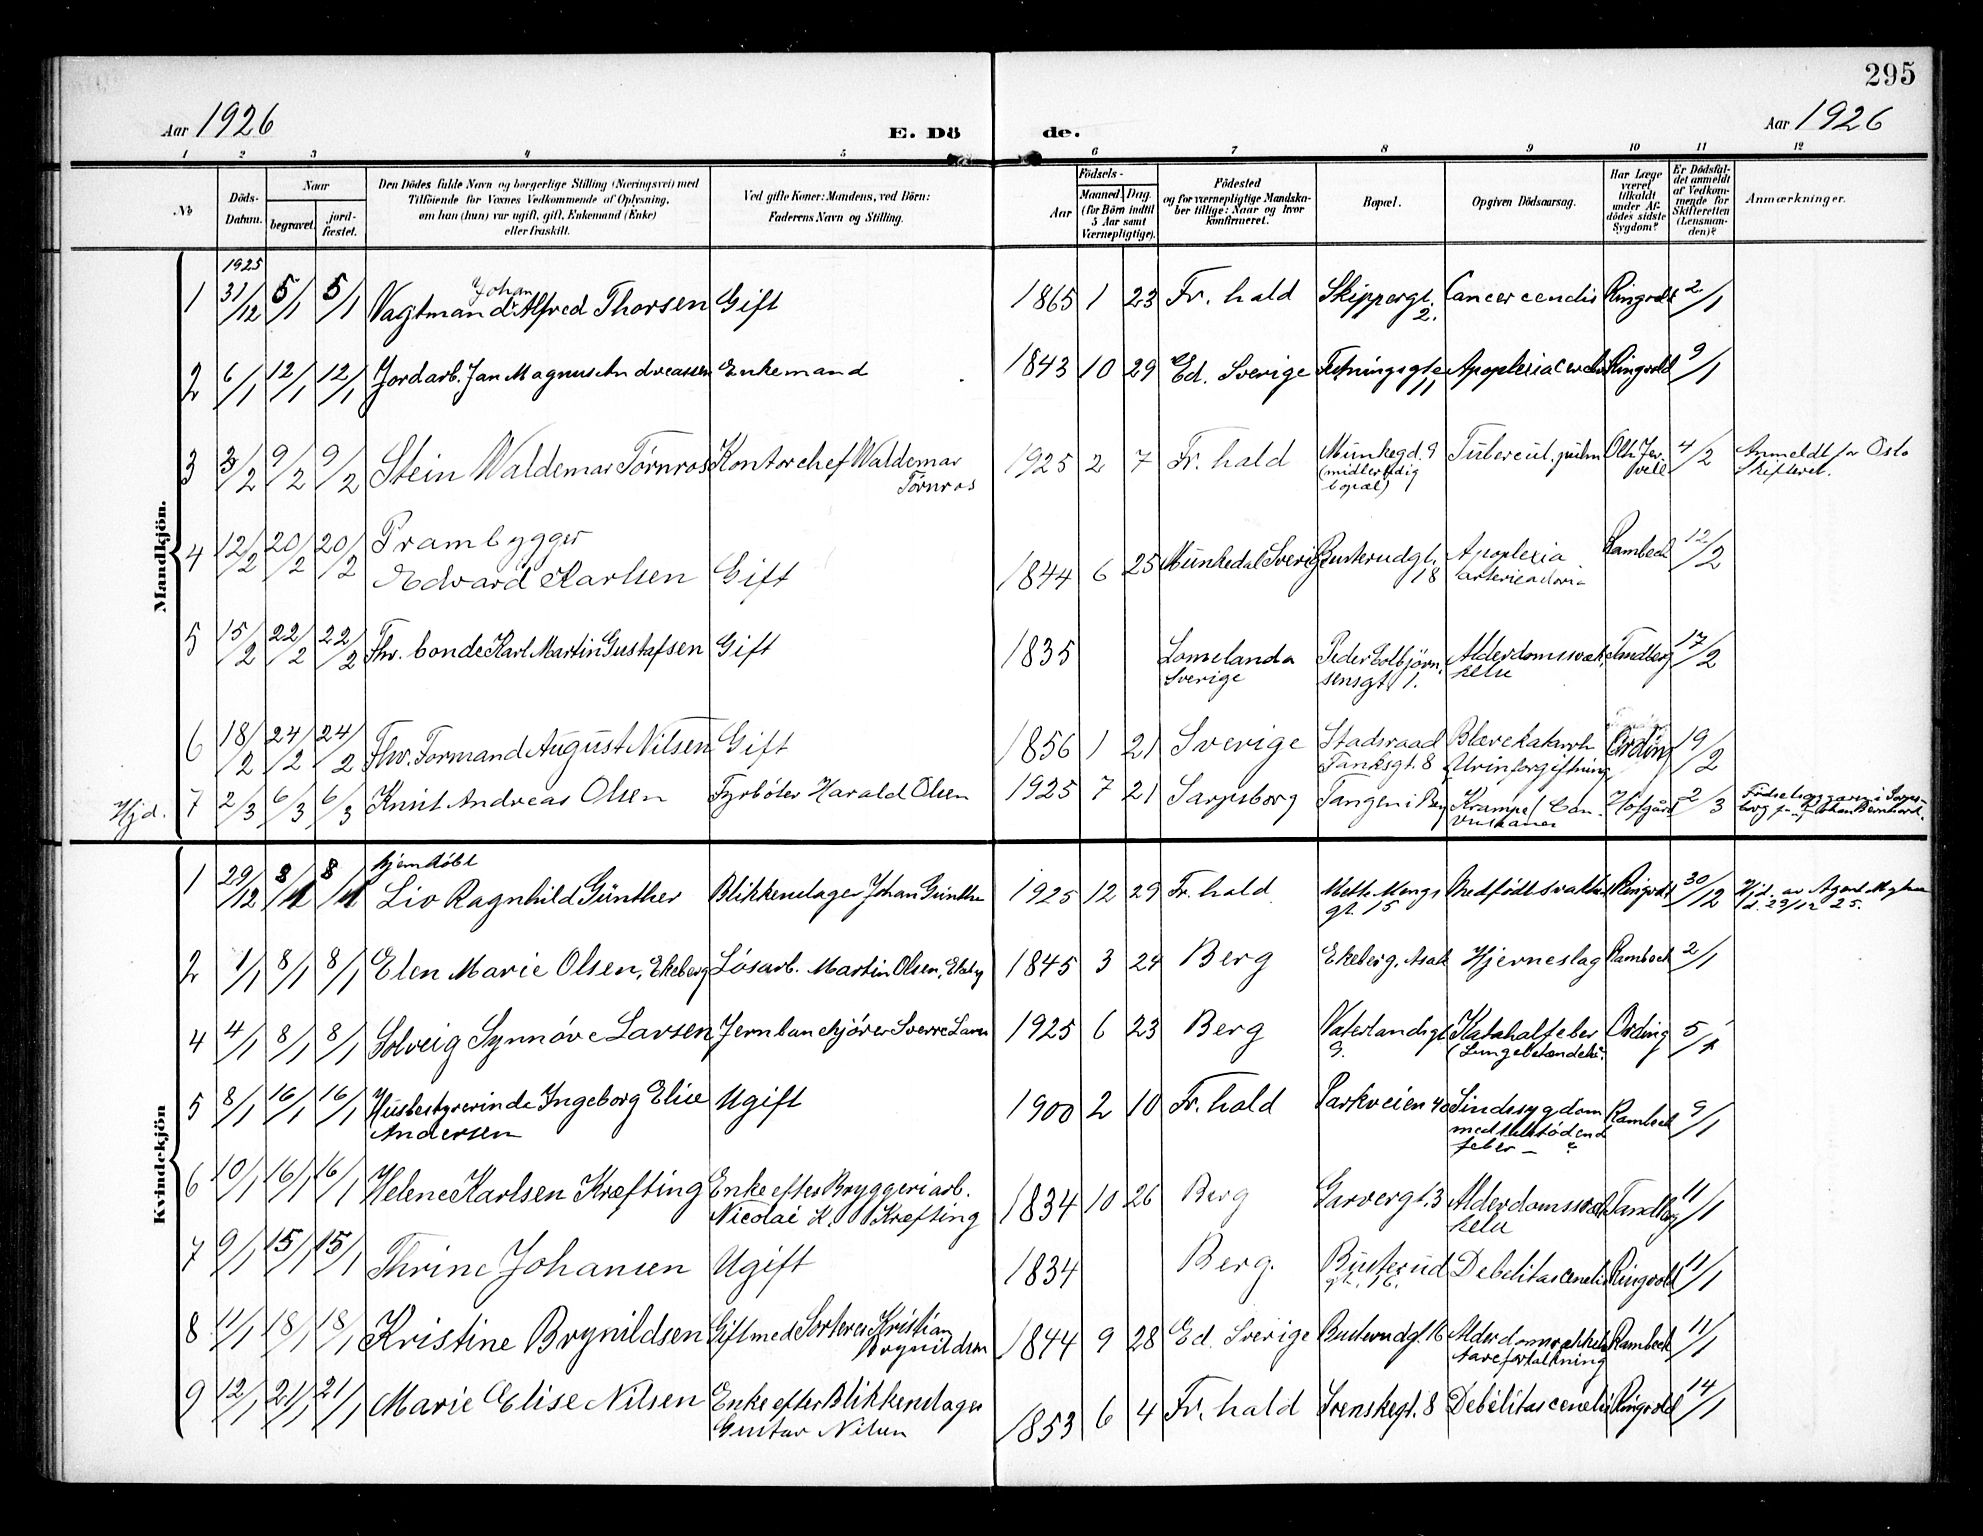 295
Aar 1926
E. Dö
de.
Aar 1926
1 2 3 4 5 6 7 8 9 10 11 12
No
Döds-
Datum.
Naar
begravet.
jord-
fæstet.
Den Dödes fulde Navn og borgerlige Stilling (Næringsvei) med
Tilföiende for Voxnes Vedkommende af Oplysning,
om han (hun) var ugift, gift, Enkemand (Enke)
eller fraskilt.
Ved gifte Koner: Mandens, ved Börn:
Faderens Navn og Stilling.
Födsels-
Aar
Maaned. Dag.
(for Börn indtil
5 Aar samt
Værnepligtige).
Födested
og for værnepligtige Mandska-
ber tillige: Naar og hvor
konfirmeret.
Bopæl.
Opgiven Dödsaarsag.
Har Læge
været
tilkaldt
under Af-
dödes sidste
Sygdom?
Er Dödsfal-
det anmeldt
af Vedkom-
mende for
Skifteretten
(Lensman-
den)?
Anmærkninger.
Mandkjön.
1925
1 31/12 5/1 5/1 Vagtmand Johan Alfred Thorsen Gift 1865 1 23 Fr.hald Skippergt. Ringvold 2/1
2.
2 6/1 12/1 12/1 Jordarb. Jan Magnus Andreassen Enkemand 1843 10 29 Ed. Sverige Festningsgte Apoplexia Ringvold 9/1
11
3 3/2 9/2 9/2 Stein Waldemar Törnros Kontorchef Waldemar 1925 2 7 Fr.hald Munkegd. 9 Tubercul. pulm 4/2 Anmeldt for Oslo
Törnros (midlertidig Skifteret.
bopæl)
4 12/2 20/2 20/2 Prambygger
Edvard Karlsen Gift 1844 6 25 Munkedal Sverige Busterudgt. Apoplexia Rambeck 12/2
18
5 15/2 22/2 22/2 Fhv. bonde Karl Martin Gustafsen Gift 1835 Lomelanda Peder Colbjörn- Alderdomssvak- Tandberg 17/2
Sverige sensgt. 1. helse
6 18/2 24/2 24/2 Fhv. Formand August Nilsen Gift 1856 1 21 Sverige Stadsraad Blærekatarrh Ording 19/2
Tanksgt. 8 Urinforgiftning
Hjd. 7 2/3 6/3 6/3 Knut Andreas Olsen Fyrböter Harald Olsen 1925 7 21 Sarpsborg Tangen i Berg Krampe Hofgård 2/3
Kvindekjön
hjemdöbt
1 29/12 8/1 8/1 Liv Ragnhild Günther Blikkenslager Johan Günther 1925 12 29 Fr.hald Mette Mengs Medfödt svakhet Ringvold 30/12 Hjd. av Agent
gt. 15 d. 29/12 25.
2 1/1 8/1 8/1 Elen Marie Olsen, Ekeberg Lösarb. Martin Olsen, 1845 3 24 Berg Ekeberg, Asak Hjerneslag Rambeck 2/1
4 4/1 8/1 8/1 Solveig Synnöve Larsen Jernbanekjörer Sverre Larsen 1925 6 23 Berg Vaterlandsgt Katahalfeber Ording 5/1
9. (Lungebetændelse
5 8/1 16/1 16/1 Husbestyrerinde Ingeborg Elise Ugift 1900 2 10 Fr.hald Parkveien 40 Sindssygdom Rambeck 9/1
Andersen med tilstödende
feber – ?
6 10/1 16/1 16/1 Helene Karlsen Kræfting Enke efter Bryggeriarb. 1834 10 26 Berg Garvergt. 3 Alderdomssvak- Tandberg 11/1
Nicolai K. Kræfting helse
7 9/1 15/1 15/1 Thrine Johansen Ugift 1834 Berg. Busterud Debilitas cenelis Ringvold 11/1
gt. 16.
8 11/1 18/1 18/1 Kristine Brynildsen Gift med Sorterer Kristian 1844 9 28 Ed. Sverige Busterudgt. 16 Rambeck 11/1
Brynildsen Aareforkalkning
9 12/1 21/1 21/1 Marie Elise Nilsen Enke efter Blikkenslager 1853 6 4 Fr.hald Svenskegt. 8 Debilitas cenelis Ringvold 14/1
Gustav Nilsen